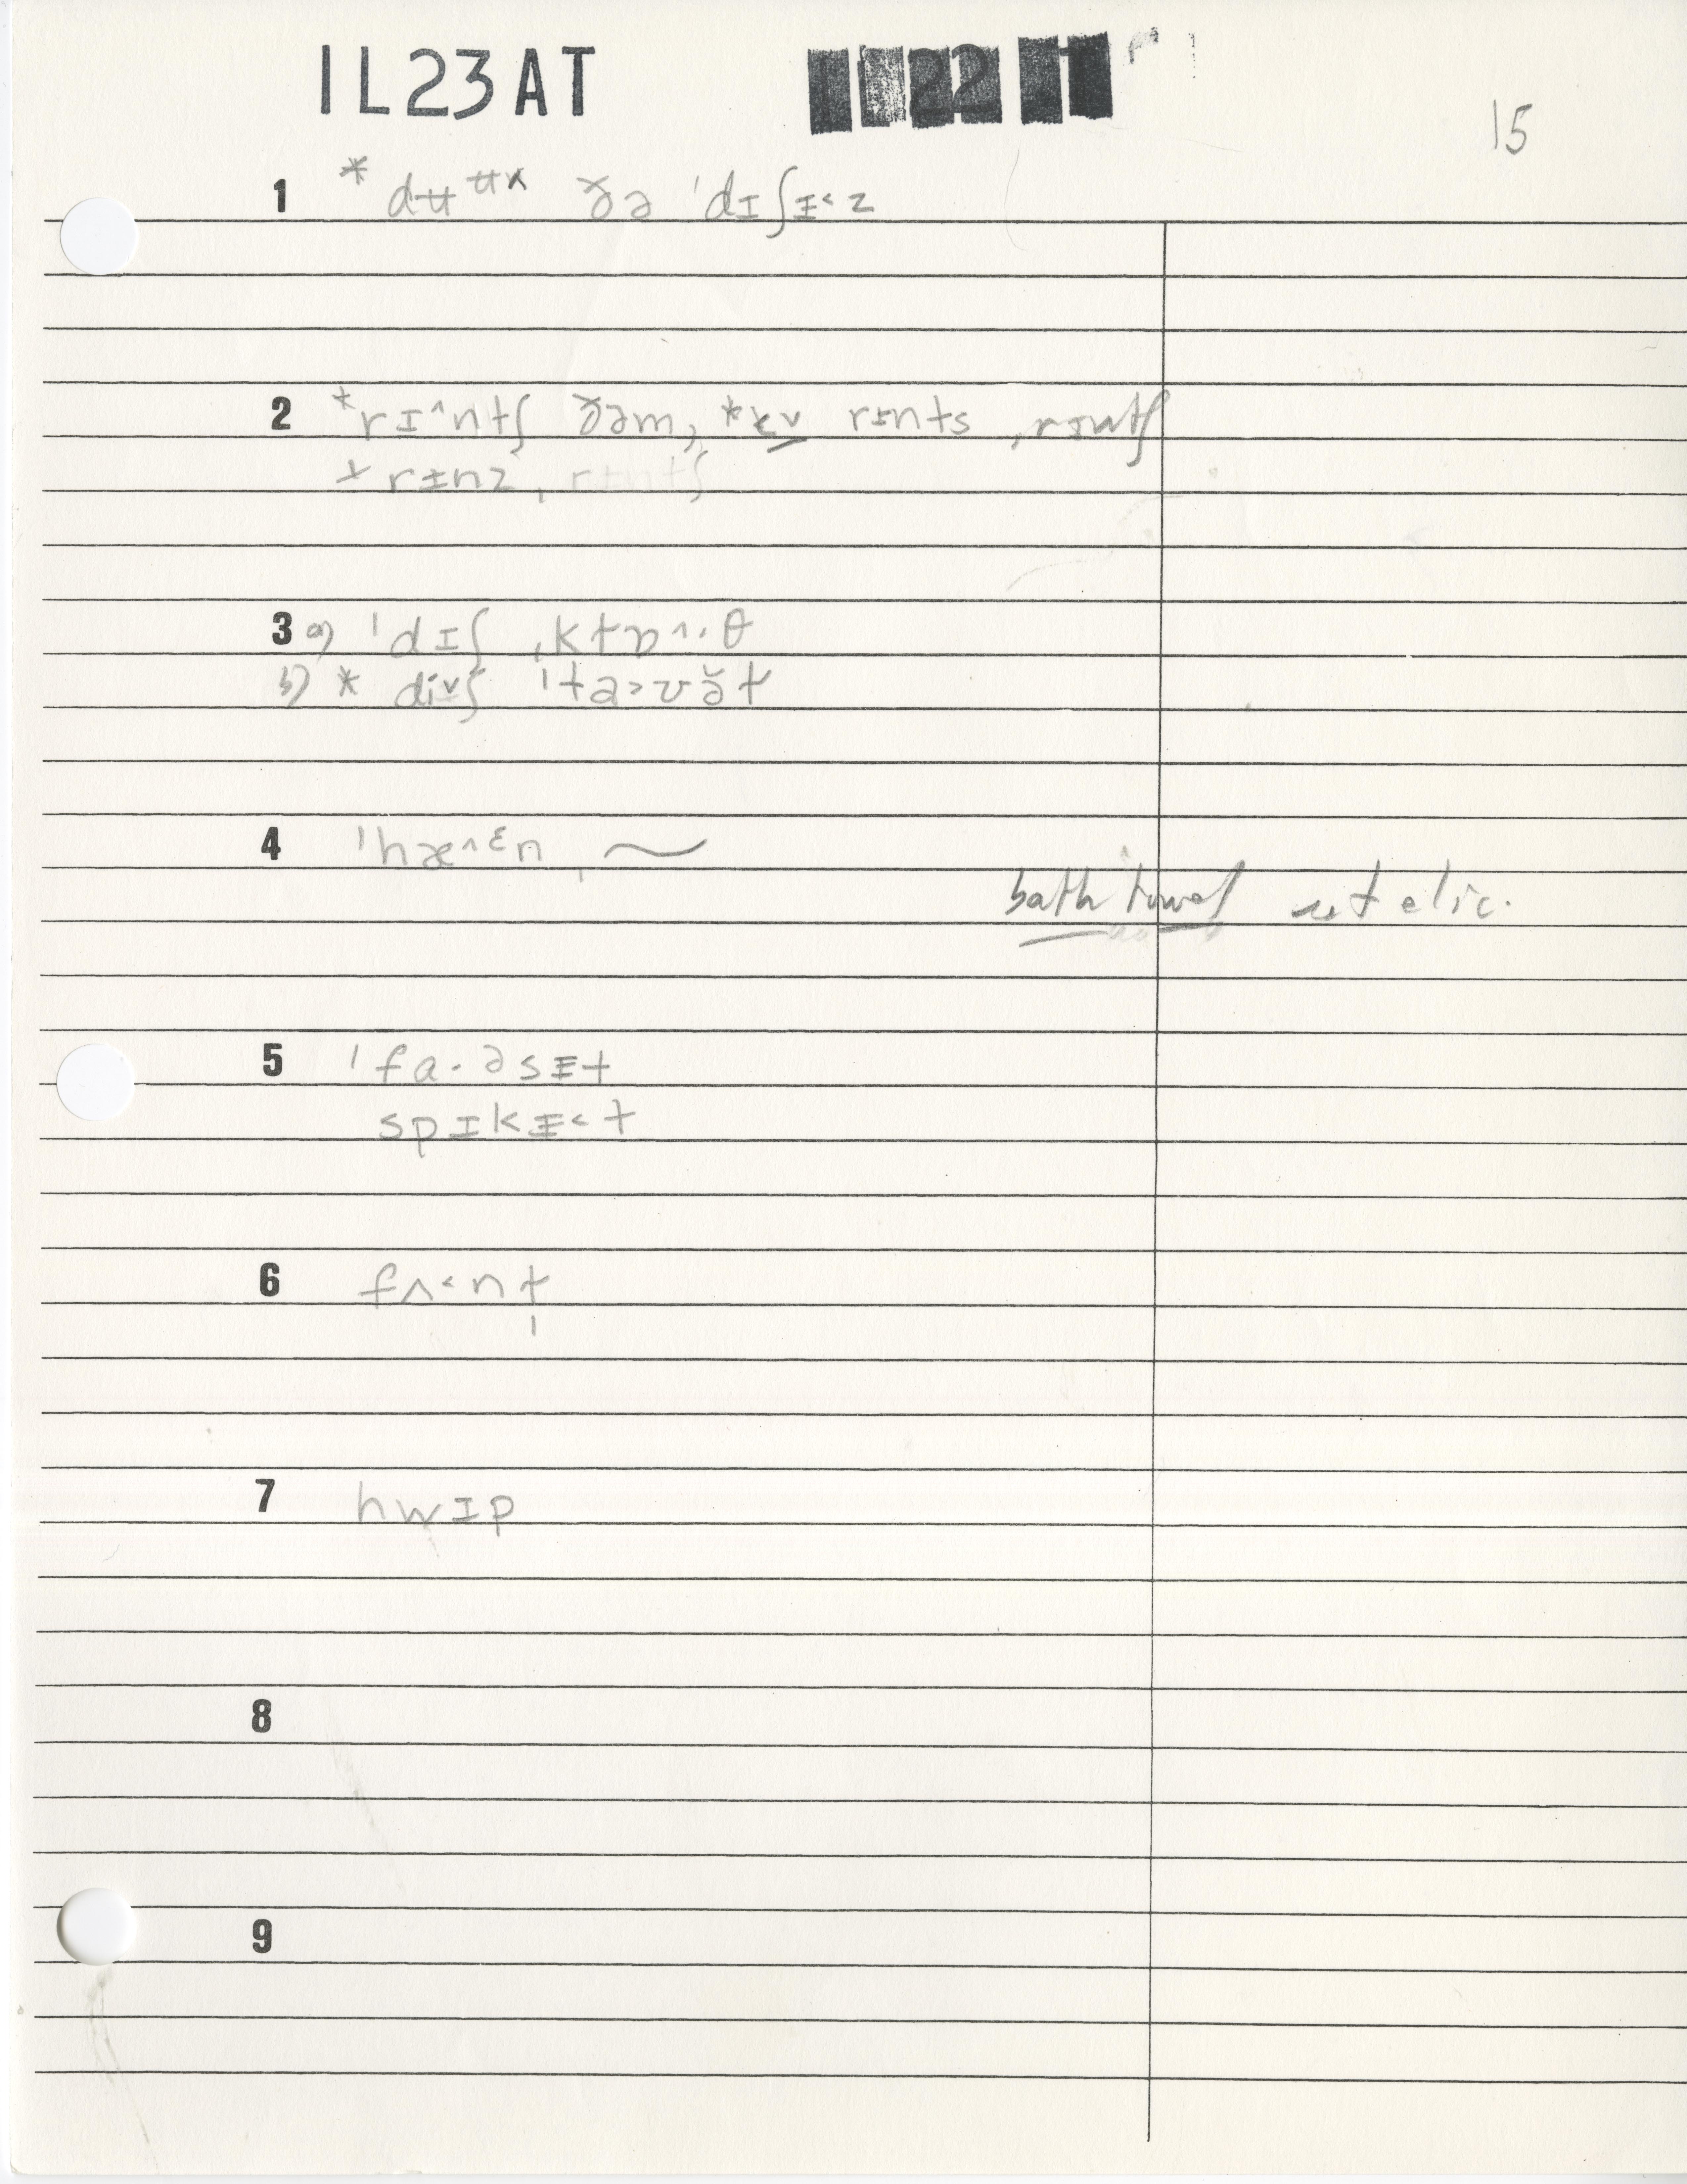 IL23AT
15
1 * dʉ ʉʌ ɣə ˈdɪʃᵻ˂z
2 *rɪ^ntʃ ɣəm, *cv rɪnts, rɪntʃ
+ rɪnz, rɪntʃ
3 a) ˈdɪʃ ˌktɒ^·θ
b) * di˅ʃ ˈta˃ʊə̆t
4 ˈhæ^ɛn, ~
bath towel not elic.
5 ˈfa·əsᵻt
spɪkᵻ˂t
6 fʌ˂nt
7 hwɪp
8
9